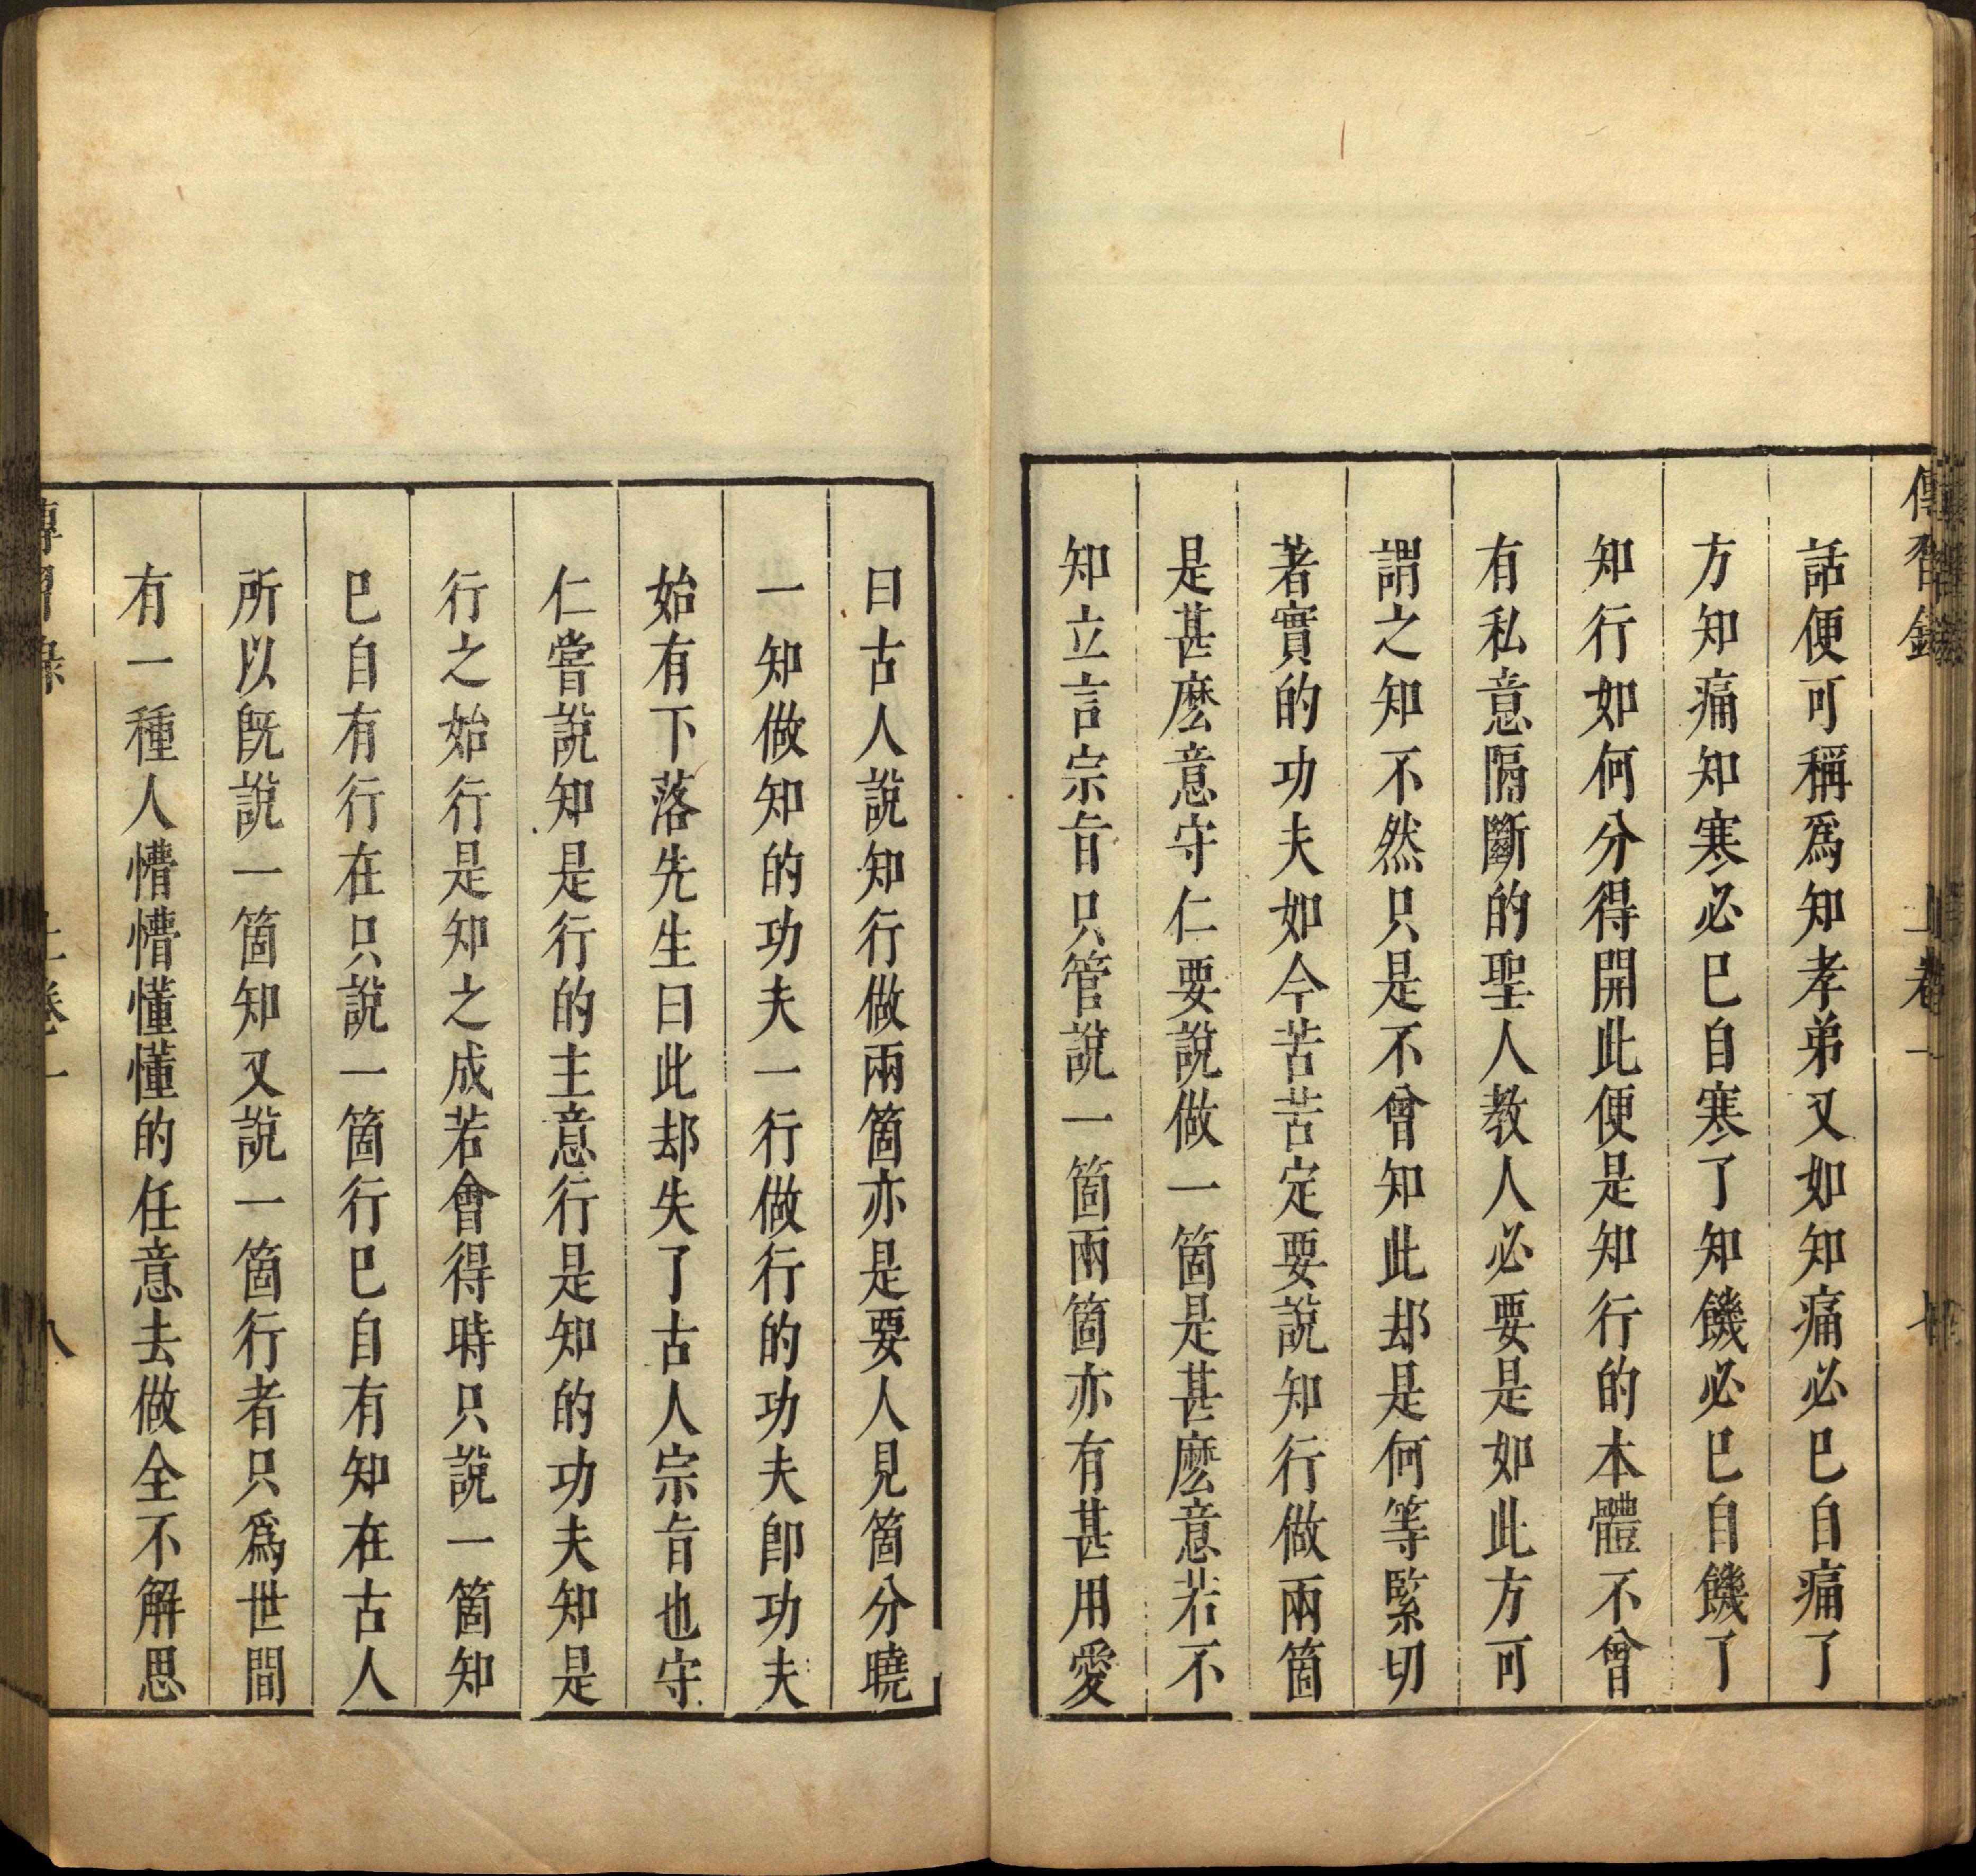 傳習錄 上卷一 七
話便可稱爲知孝弟又如知痛必已自痛了
方知痛知寒必已自寒了知饑必已自饑了
知行如何分得開此便是知行的本體不曾
有私意隔斷的聖人教人必要是如此方可
謂之知不然只是不曾知此却是何等緊切
著實的功夫如今苦苦定要說知行做兩箇
是甚麽意守仁要說做一箇是甚麽意若不
知立言宗旨只管說一箇兩箇亦有甚用愛
曰古人說知行做兩箇亦是要人見箇分曉
一知做知的功夫一行做行的功夫卽功夫
始有下落先生曰此却失了古人宗旨也守
仁嘗說知是行的主意行是知的功夫知是
行之始行是知之成若會得時只說一箇知
已自有行在只說一箇行已自有知在古人
所以旣說一箇知又說一箇行者只爲世間
有一種人懵懵懂懂的任意去做全不解思
傳習錄 上卷一 八